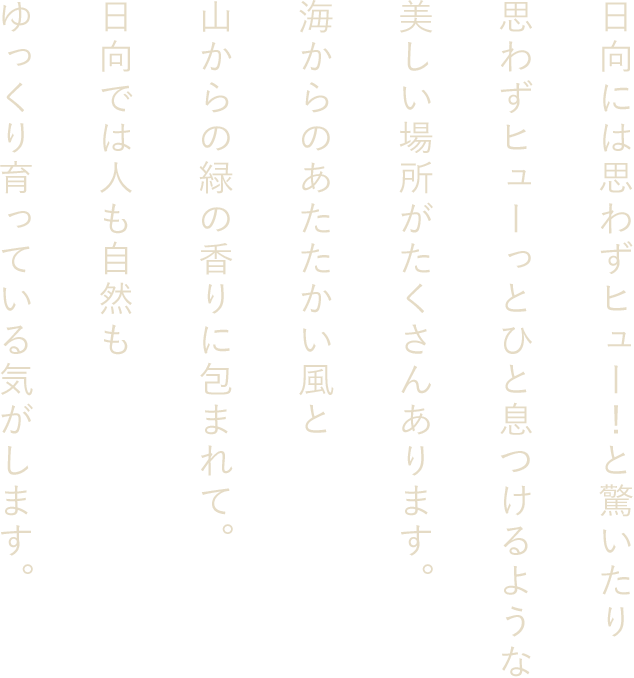 日向には思わずヒュー！と驚いたり
思わずヒューっとひと息つけるような
美しい場所がたくさんあります。
海からのあたたかい風と
山からの緑の香りに包まれて。
日向では人も自然も
ゆっくり育っている気がします。